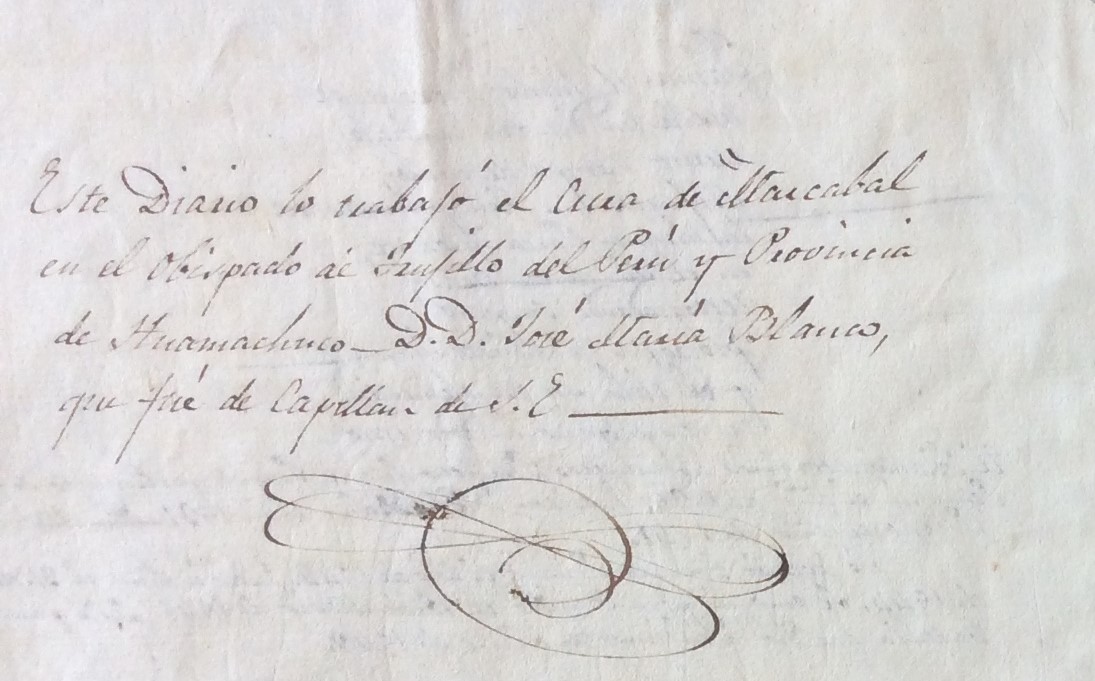 Este Diario lo trabajó el Cura de Marcabal
en el Obispado de Trujillo del Perú y Provincia
de Huamachuco D.D. José María Blanco,
que fué de Capellan de S.E